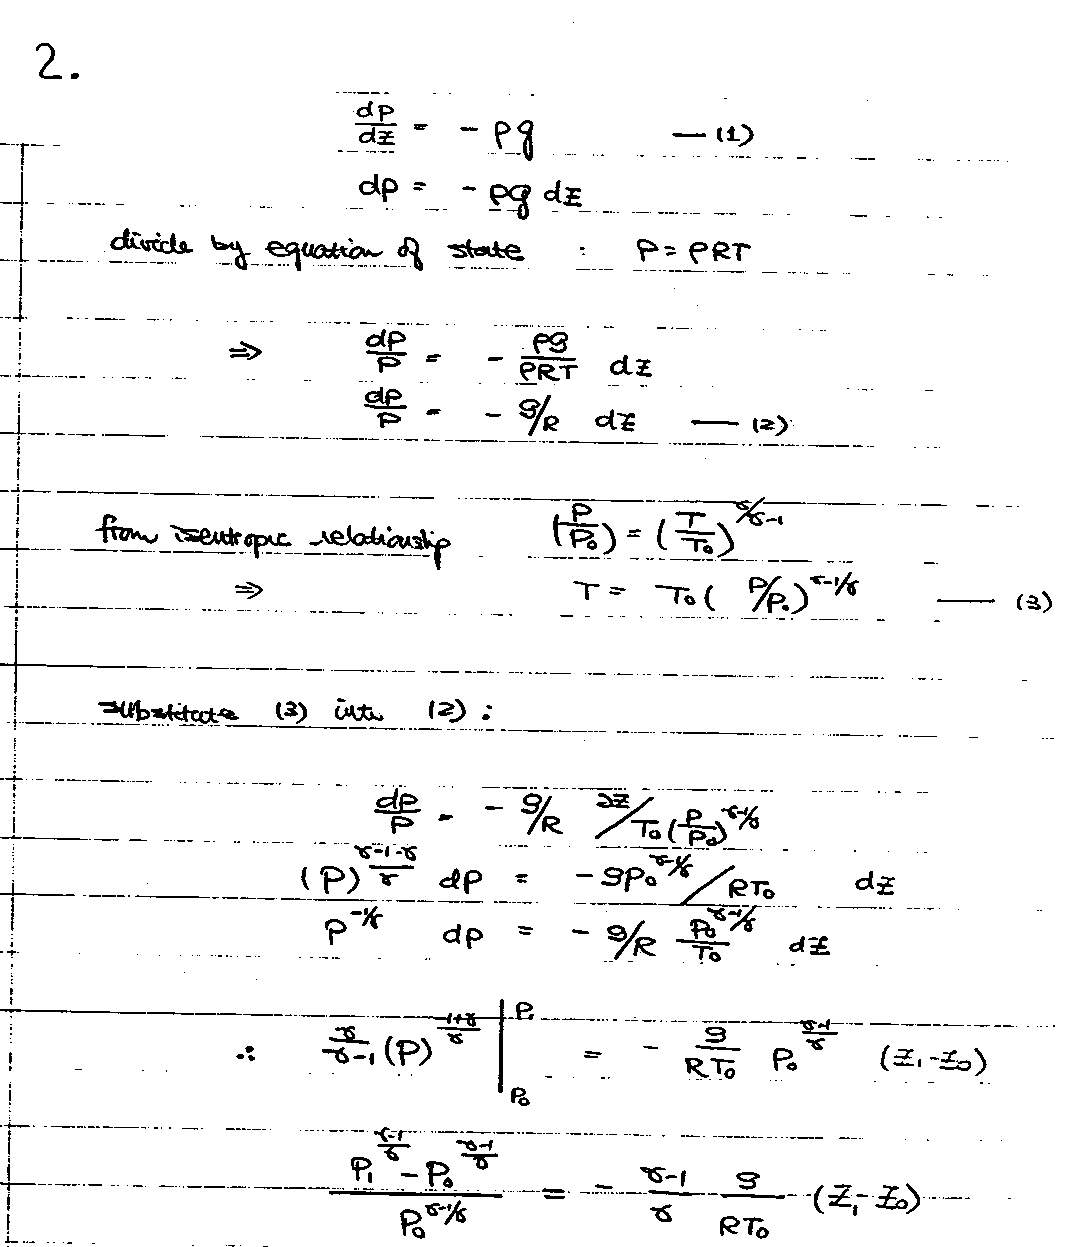 2.
dP/dz = - ρg —(1)
dp = - ρg dz
divide by equation of state : P = ρRT
⇒ dP/P = - ρg/ρRT dz
dP/P = - g/R dz — (2)
from isentropic relationship (P/P₀) = (T/T₀)^γ/γ-1
⇒ T = T₀ ( P/P₀)^γ-1/γ — (3)
substitute (3) into (2) :
dP/P = - g/R dz/T₀(P/P₀)^γ-1/γ
(P)^(γ-1-γ)/γ dP = - gP₀^γ-1/γ/RT₀ dz
P^-1/γ dP = - g/R P₀^γ-1/γ/T₀ dz
∴ γ/γ-1 (P)^(-1+γ)/γ |P₁ P₀ = - g/RT₀ P₀^(γ-1)/γ (Z₁-Z₀)
P₁^(γ-1)/γ - P₀^(γ-1)/γ / P₀^γ-1/γ = - γ-1/γ g/RT₀ (Z₁-Z₀)